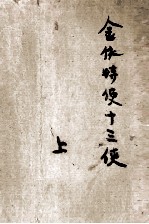 金依特使十三使
上